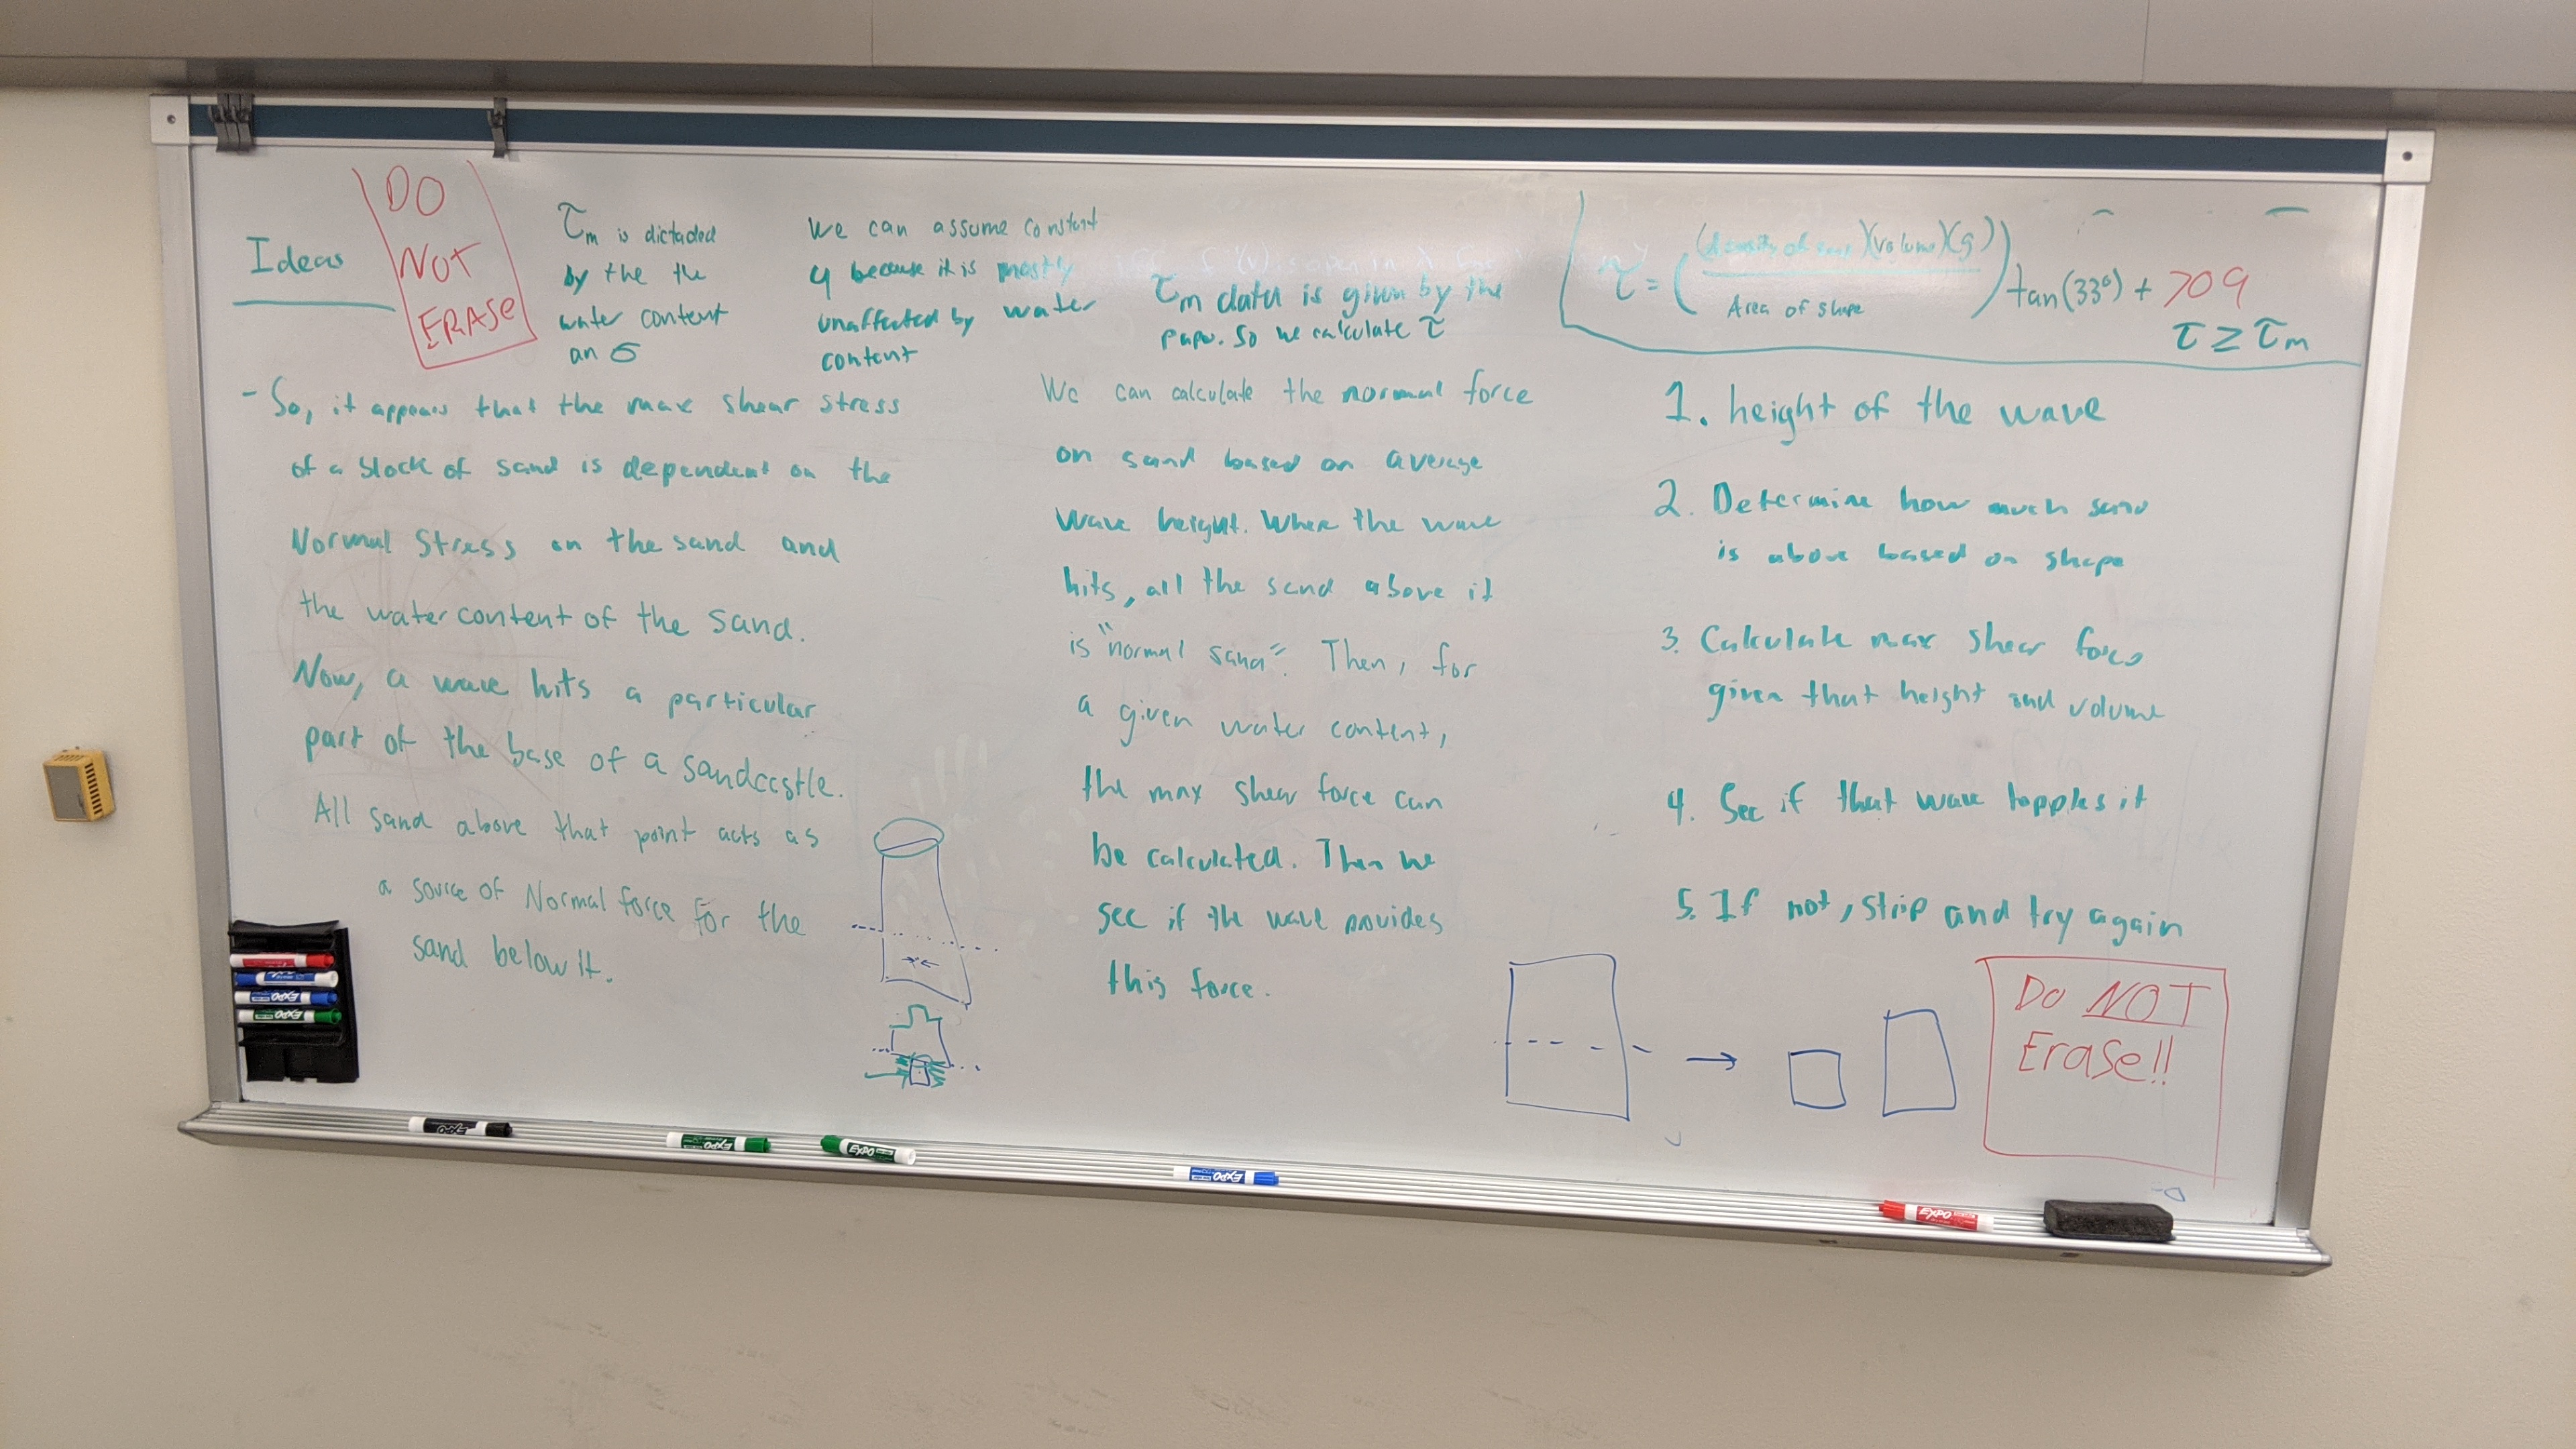 Ideas
DO
NOT
ERASE
τm is dictaded
by the the
water content
an σ
we can assume constant
φ because it is mostly
unaffected by water
content
τm data is given by the
paper. So we calculate τ
τ = ((density of sand)(volume)(g) / Area of shape) tan(33°) + 709
τ ≥ τm
- So, it appears that the max shear stress
of a block of sand is dependent on the
Normal Stress on the sand and
the water content of the sand.
Now, a wave hits a particular
part of the base of a sandcastle.
All sand above that point acts as
a source of Normal force for the
sand below it.
We can calculate the normal force
on sand based on average
wave height. When the wave
hits, all the sand above it
is "normal sand". Then, for
a given water content,
the max shear force can
be calculated. Then we
see if the wave provides
this force.
1. height of the wave
2. Determine how much sand
is above based on shape
3. Calculate max shear force
given that height and volume
4. See if that wave topples it
5. If not, strip and try again
Do NOT
Erase!!
EXPO
EXPO
EXPO
EXPO
EXPO
EXPO
EXPO
EXPO